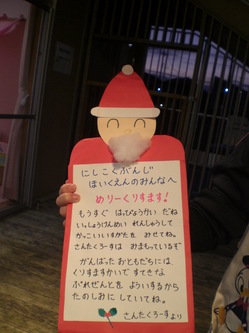 にしこくぶんじ
ほいくえんのみんなへ
めりーくりすます!
もうすぐ はっぴょうかい だね
いっしょうけんめい れんしゅうして
かっこいいすがたを みせてね。
さんたくろーすは おまもっているぞ
がんばった おともだちには
くりすますかいで すてきな
ぷれぜんとを ようい するから
たのしみに していてね。
さんたくろーすより